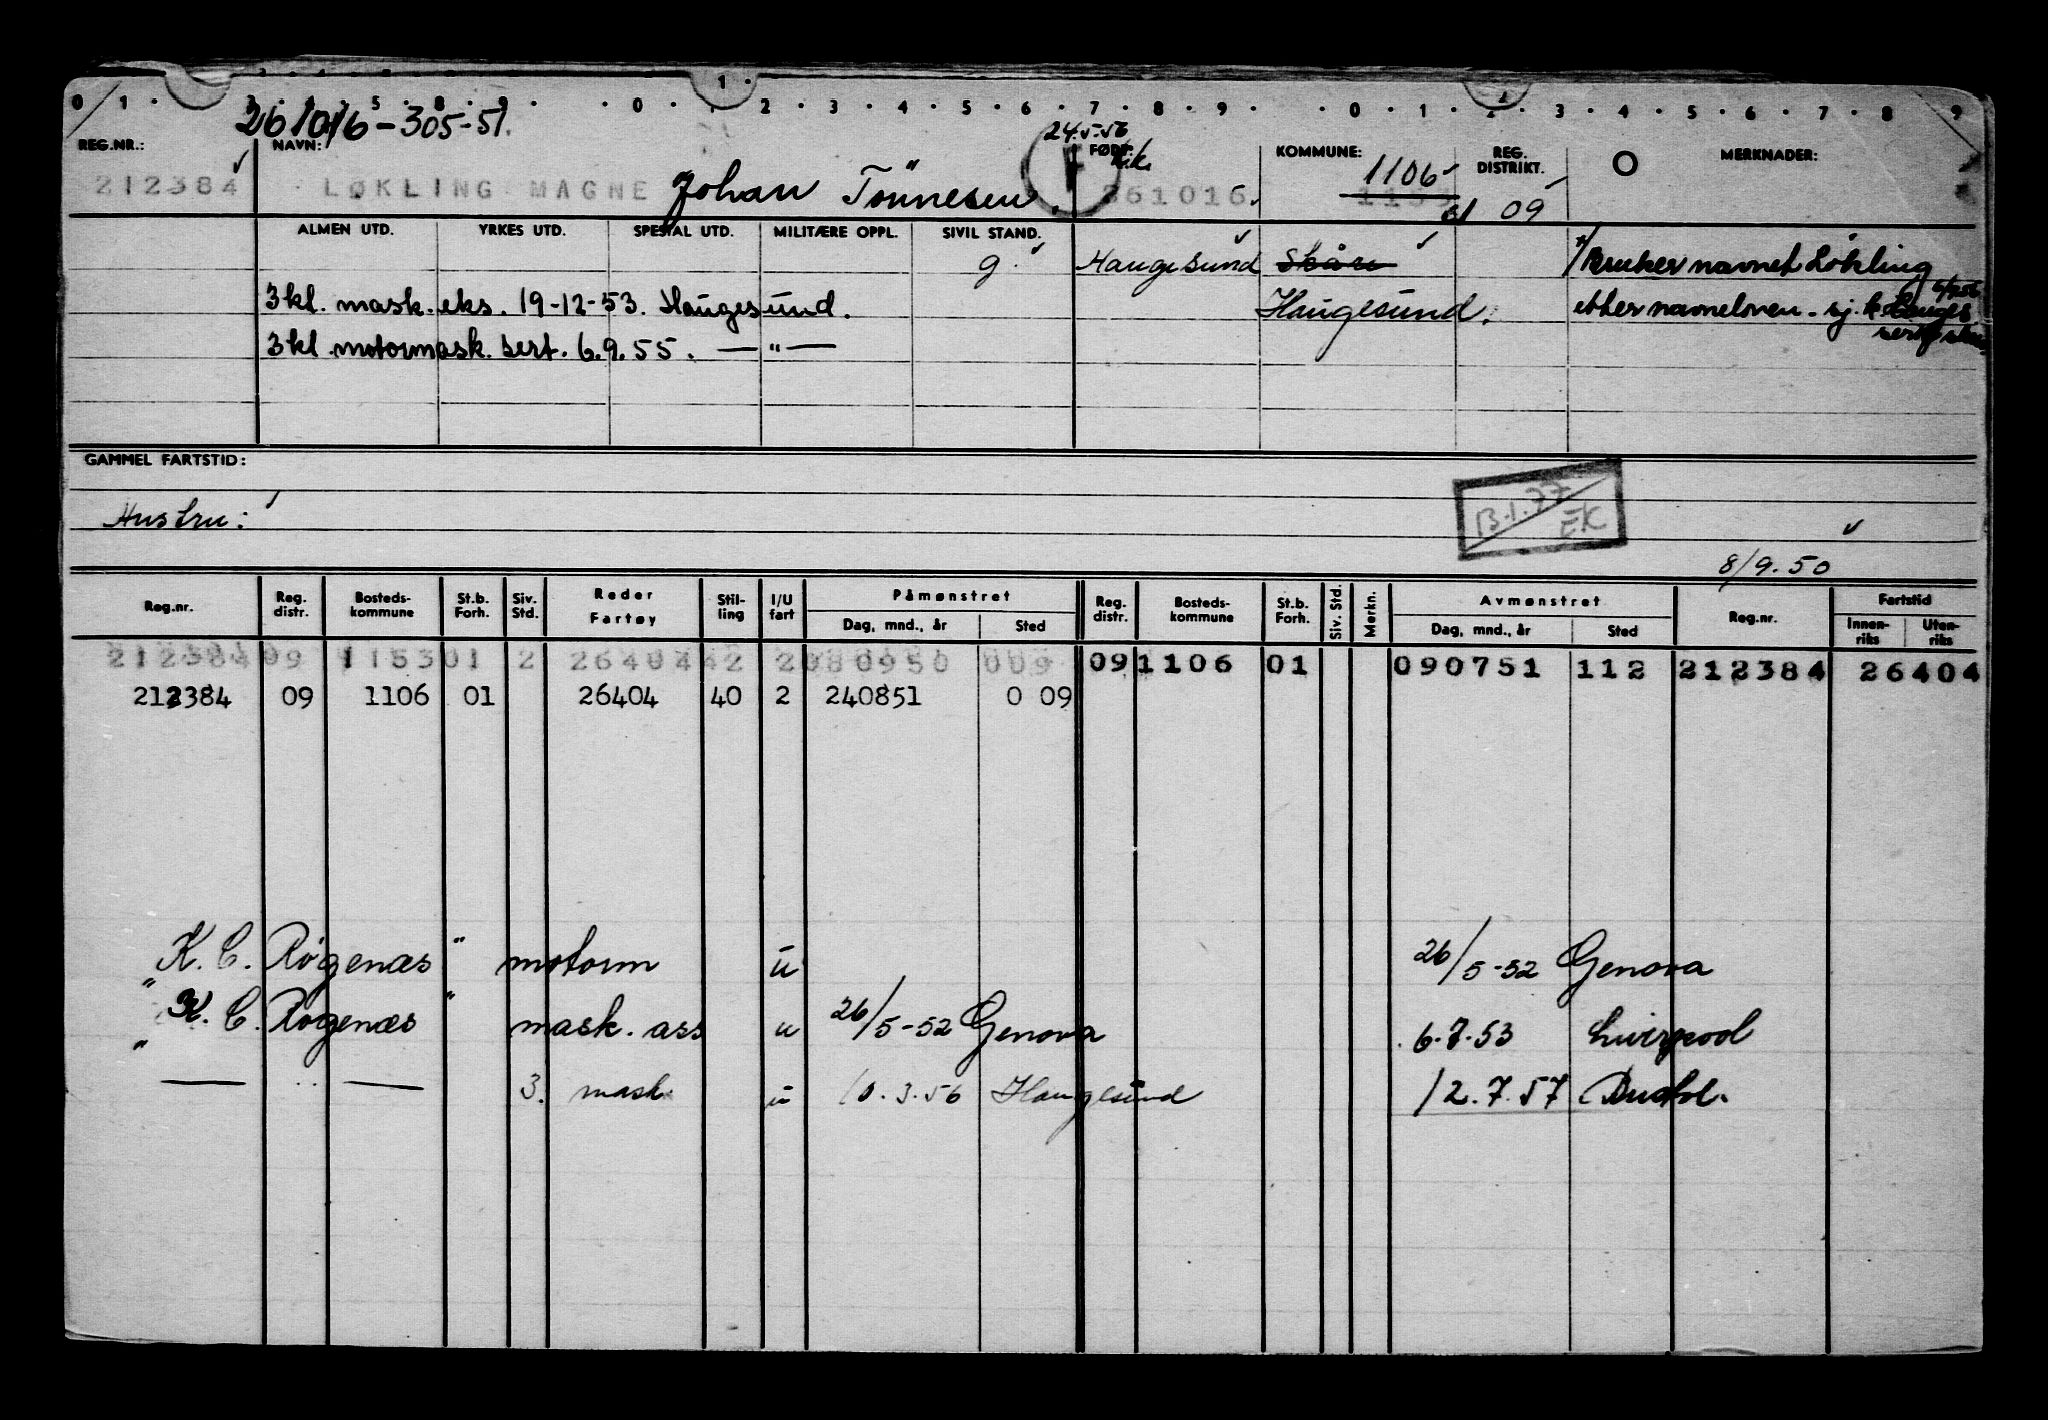 0 1 . 3 . 4 . 5 . 8 . 9 . . 0 . 1 . 2 . 3 . 4 . 5 . 6 . 7 . 8 . 9 . . 0 . 1 . 2 . 3 . 4 . 5 . 6 . 7 . 8 9
261016-305-51.
24.5.56
REG.NR.: NAVN: FØDT: KOMMUNE: REG. DISTRIKT. MERKNADER:
212384 LØKLING MAGNE Johan Tönnesen. 261016. 1106 1153 09
ALMEN UTD. YRKES UTD. SPESIAL UTD. MILITÆRE OPPL. SIVIL STAND.
g. Haugesund Skåre Bruker navnet Lökling
3 kl. mask. eks. 19-12-53. Haugesund. Haugesund. etter navneloven - sj.
3 kl. motormask. sert. 6.9.55. — " —
GAMMEL FARTSTID:
Hustru:
13.1.77 EK
8/9.50
Reg.nr. Reg. distr. Bosteds-kommune St.b. Forh. Siv. Std. Reder Fartøy Stil-ling I/U fart Påmønstret Reg. distr. Bosteds-kommune St.b. Forh. Siv. Std. Merkn. Avmønstret Reg.nr. Fartstid
Dag, mnd., år Sted Dag, mnd., år Sted Innen-riks Uten-riks
212384 09 1153 01 2 26404 42 2 080950 009 09 1106 01 090751 112 212384 26404
212384 09 1106 01 26404 40 2 240851 0 09
"K. C. Røgenæs" motorm u 26/5-52 Genova
"K. C. Rogenæs" mask. ass u 26/5-52 Genova 6.7.53 Liverpool
— " — 3. mask u 10.3.56 Haugesund 12.7.57